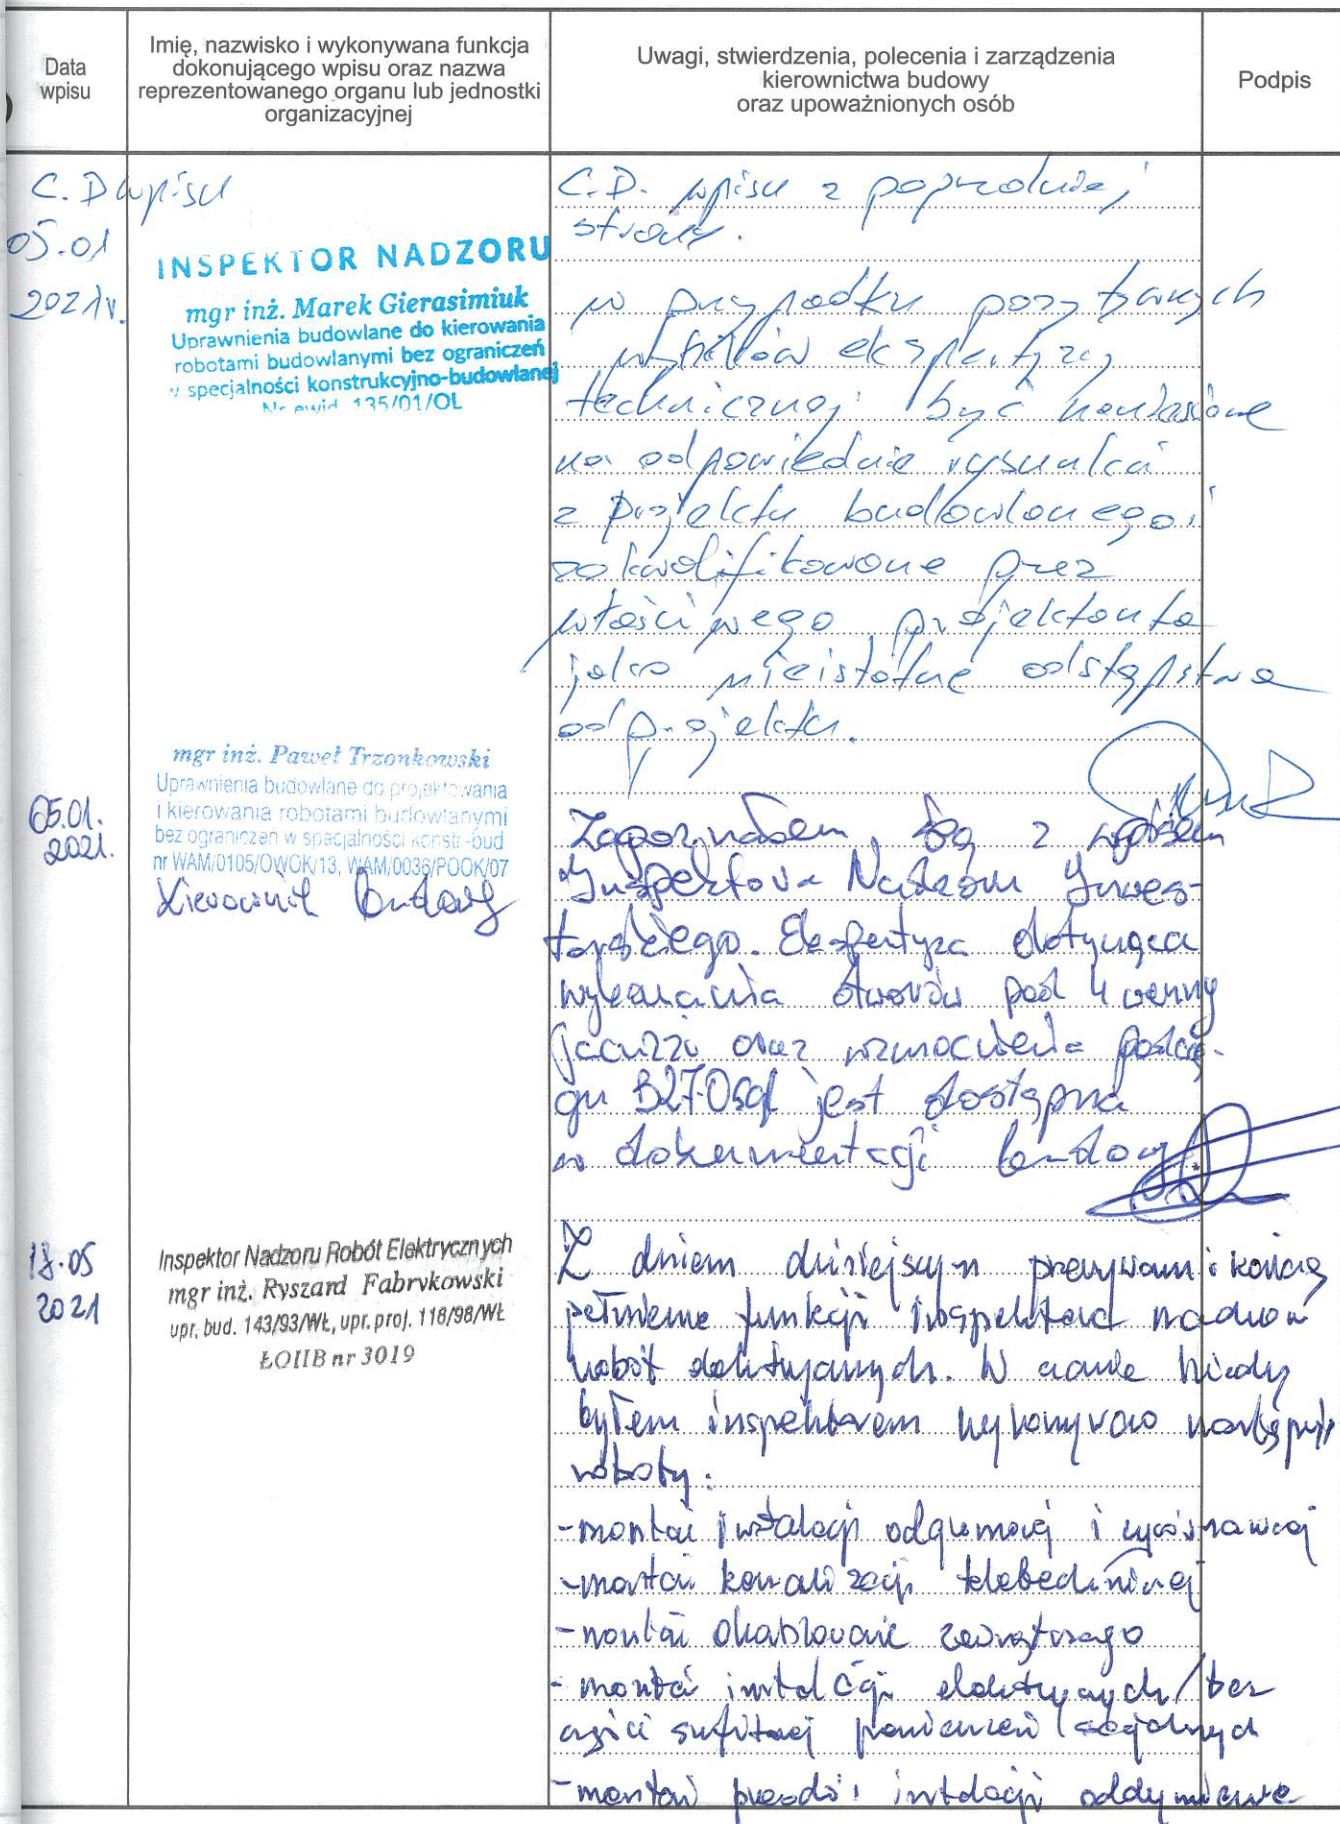 Data
wpisu
Imię, nazwisko i wykonywana funkcja
dokonującego wpisu oraz nazwa
reprezentowanego organu lub jednostki
organizacyjnej
Uwagi, stwierdzenia, polecenia i zarządzenia
kierownictwa budowy
oraz upoważnionych osób
Podpis
C.D wpisu
05.01
2021r.
INSPEKTOR NADZORU
mgr inż. Marek Gierasimiuk
Uprawnienia budowlane do kierowania
robotami budowlanymi bez ograniczeń
w specjalności konstrukcyjno-budowlanej
Nr ewid. 135/01/OL
C.D. wpisu z poprzedniej
strony.
w przypadku pozytywnych
wyników ekspertyzy
technicznej być naniesione
na odpowiednie rysunki
z projektu budowlanego i
zakwalifikowane przez
właściwego projektanta
jako nieistotne odstępstwa
od projektu.
05.01.
2021.
mgr inż. Paweł Trzonkowski
Uprawnienia budowlane do projektowania
i kierowania robotami budowlanymi
bez ograniczeń w specjalności konstr-bud
nr WAM/0105/OWOK/13, WAM/0036/POOK/07
Kierownik Budowy
Zapoznałem się z wpisem
Inspektora Nadzoru Inwes-
torskiego. Ekspertyza dotycząca
wykonania otworów pod 4 wanny
jacuzzi oraz wzmocnienia podcią-
gu jest dostępna
w dokumentacji budowy
18.05
2021
Inspektor Nadzoru Robót Elektrycznych
mgr inż. Ryszard Fabrykowski
upr. bud. 143/93/WŁ, upr. proj. 118/98/WŁ
ŁOIIB nr 3019
Z dniem dzisiejszym przerywam i kończę
pełnienie funkcji inspektora nadzoru
robót elektrycznych. W czasie kiedy
byłem inspektorem wykonywano następujące
roboty:
- montaż instalacji odgromowej i wyrównawczej
- montaż kanalizacji teletechnicznej
- montaż okablowanie zewnętrznego
- montaż instalacji elektrycznych /bez
części sufitowej pomieszczeń socjalnych
- montaż instalacji oddymiania